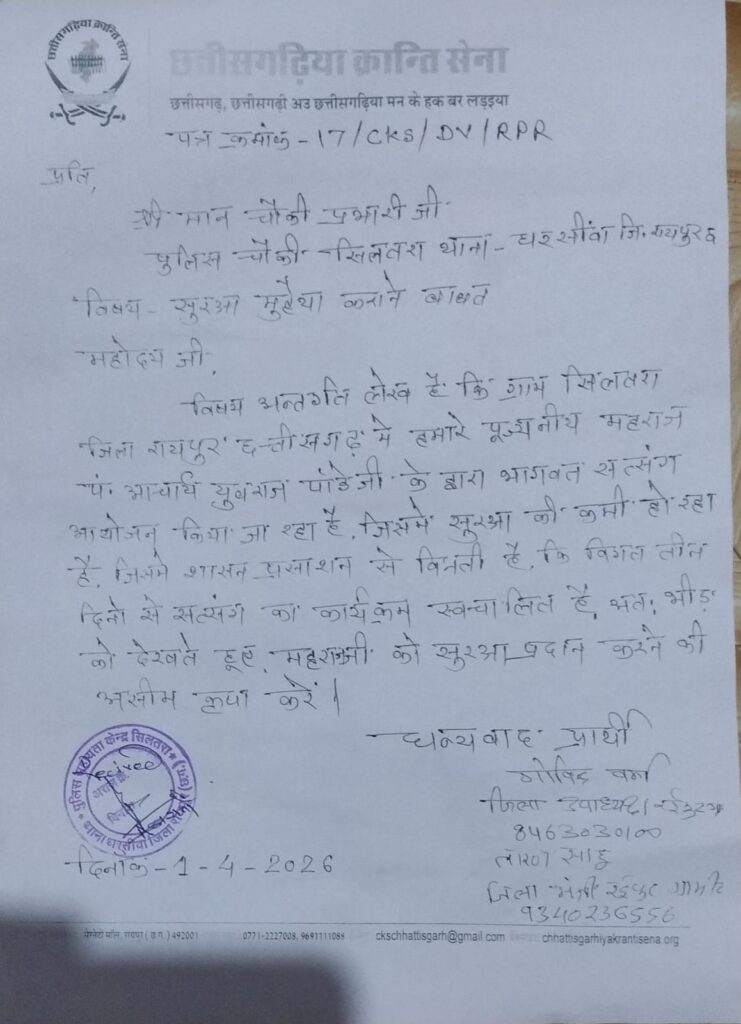 छत्तीसगढ़िया क्रान्ति सेना
छत्तीसगढ़िया क्रान्ति सेना
छत्तीसगढ़, छत्तीसगढ़ी अउ छत्तीसगढ़िया मन के हक बर लड़इया
पत्र क्रमांक - 17/CKS/DV/RPR
प्रति,
श्री मान चौकी प्रभारी जी
पुलिस चौकी सिलतरा थाना - धरसींवा जि. रायपुर छ
विषय - सुरक्षा मुहैया कराने बाबत
महोदय जी,
विषय अन्तर्गत लेख है कि ग्राम सिलतरा
जिला रायपुर छत्तीसगढ़ में हमारे पूज्यनीय महराज
पं. आचार्य युवराज पांडेजी के द्वारा भागवत सत्संग
आयोजन किया जा रहा है, जिसमें सुरक्षा की कमी हो रहा
है, जिसमें शासन प्रसाशन से विनती है, कि विगत तीन
दिनों से सत्संग का कार्यक्रम स्वन्चालित है, अतः भीड़
को देखते हूए, महराजजी को सुरक्षा प्रदान करने की
असीम कृपा करें।
धन्यवाद प्रार्थी
गोविंद वर्मा
जिला उपाध्यक्ष
8463030100
साहू
जिला मंत्री
9340236556
पुलिस सहायता केन्द्र सिलतरा
थाना धरसींवा जिला
दिनांक - 1 - 4 - 2026
492001
0771-2227008, 9691111088
ckschhattisgarh@gmail.com
chhattisgarhiyakrantisena.org